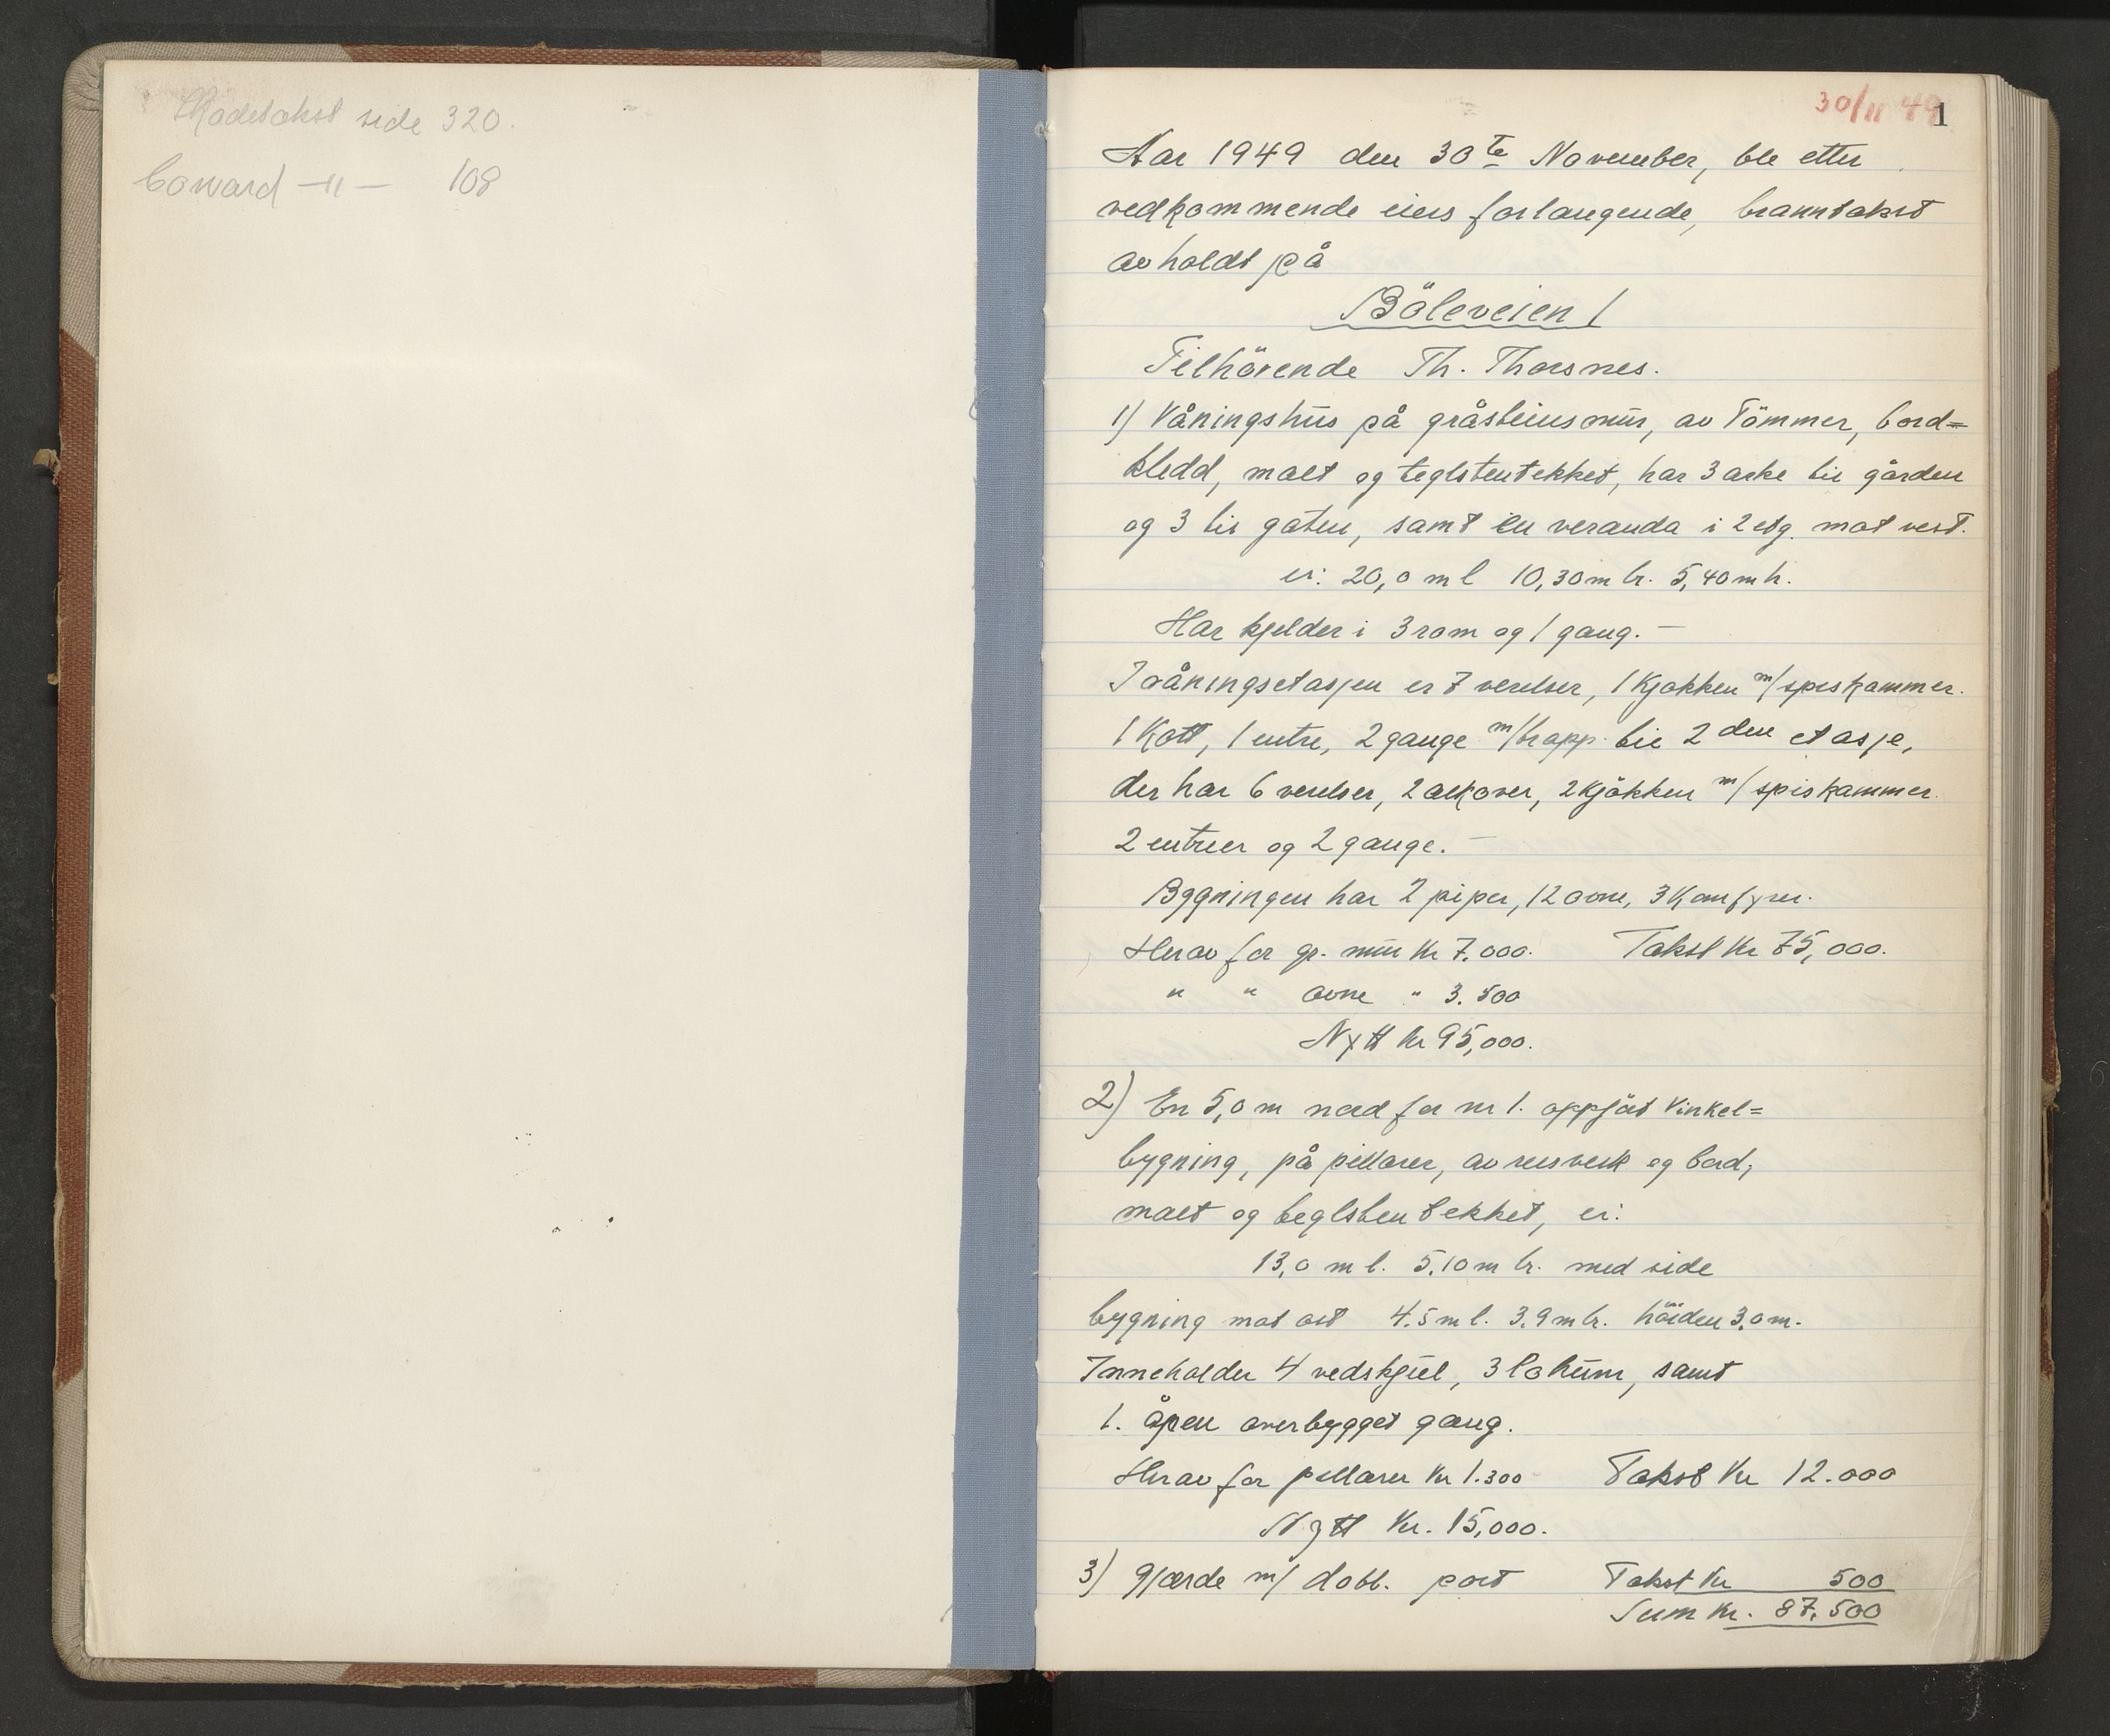 Skadetakst side 320.
Coward -"- 108
30/11 49
1
Aar 1949 den 30te November, ble etter
vedkommende eiers forlangende, branntakst
avholdt på
Böleveien 1
Tilhörende Th. Thorsnes.
1) Våningshus på gråsteinsmur, av Tömmer, bord=
kledd, malt og teglstentekket, har 3 arke til gården
og 3 til gaten, samt en veranda i 2 etg. mot vest.
er: 20,0 m l 10,30 m br. 5,40 m h.
Har kjelder i 3 rom og 1 gang. —
I våningsetasjen er 7 verelser, 1 Kjökken m/ spiskammer.
1 Kott, 1 entre, 2 gange m/trapp til 2 den etasje,
der har 6 verelser, 2 alkover, 2 Kjökken m/ spiskammer.
2 entreer og 2 gange. —
Bygningen har 2 piper, 12 ovne, 3 Komfyrer.
Herav for gr. mur Kr 7.000. Takst Kr 75,000.
" " ovne " 3.500
Nytt Kr 95,000.
2) En 5,0 m nord for nr 1. oppfört Vinkel=
bygning, på pillarer, av reisverk og bord,
malt og teglstentekket, er:
13,0 m l. 5.10 m br. med side
bygning mot ost 4.5 m l. 3.9 m br. höiden 3,0 m.
Inneholder 4 vedskjul, 3 lohum, samt
1. åpen overbygget gang.
Herav for pillarer Kr 1.300 Takst Kr 12.000
Nytt Kr. 15,000.
3) Gjærde m/ dobl. port Takst Kr 500
Sum Kr. 87.500